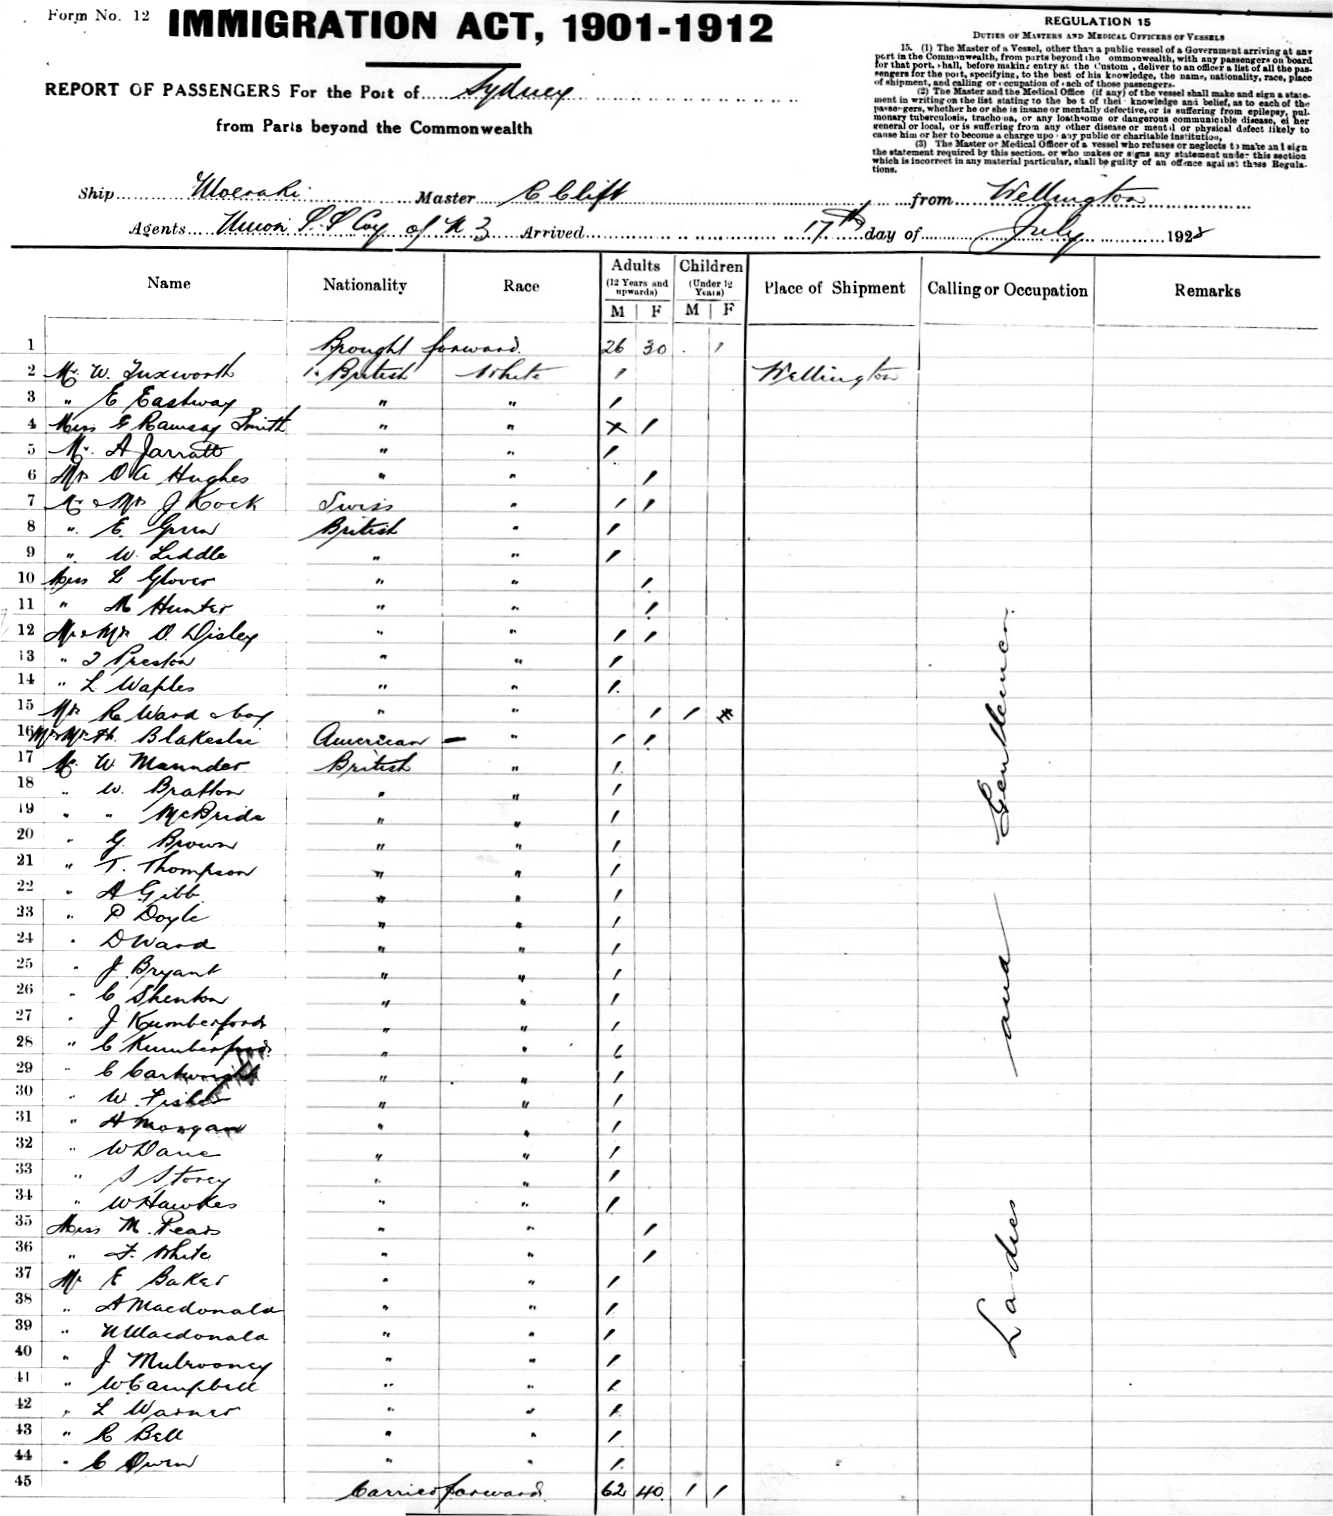 Form No. 12
IMMIGRATION ACT, 1901-1912
REGULATION 15
DUTIES OF MASTERS AND MEDICAL OFFICERS OF VESSELS
15. (1) The Master of a Vessel, other than a public vessel of a Government arriving at any
port in the Commonwealth, from parts beyond the ommonwealth, with any passengers on board
for that port, shall, before making entry at the Custom , deliver to an officer a list of all the pas-
sengers for the port, specifying, to the best of his knowledge, the name, nationality, race, place
of shipment, and calling or occupation of each of those passengers.
(2) The Master and the Medical Office (if any) of the vessel shall make and sign a state-
ment in writing on the list stating to the best of their knowledge and belief, as to each of the
passengers, whether he or she is insane or mentally defective, or is suffering from epilepsy, pul-
monary tuberculosis, trachoma, or any loathsome or dangerous communicible disease, either
general or local, or is suffering from any other disease or mental or physical defect likely to
cause him or her to become a charge upon any public or charitable institution,
(3) The Master or Medical Officer of a vessel who refuses or neglects to make and sign
the statement required by this section, or who makes or signs any statement under this section
which is incorrect in any material particular, shall be guilty of an offence against these Regula-
tions.
REPORT OF PASSENGERS For the Port of Sydney
from Parts beyond the Commonwealth
Ship Moeraki Master C Clift from Wellington
Agents Union S S Coy of N Z Arrived 17th day of July 192
Name Nationality Race Adults (12 Years and upwards) M F Children (Under 12 Years) M F Place of Shipment Calling or Occupation Remarks
1 Brought forward 26 30 . 1
2 Mr W. Tuxworth British White 1 Wellington
3 " E Eastway " " 1
4 Miss G Ramsay Smith " " x 1
5 Mr A Jarratt " " 1
6 Mrs O A Hughes " " 1
7 Mr & Mrs J Kock Swiss " 1 1
8 " E. Green British " 1
9 " W. Liddle " " 1
10 Miss L Glover " " 1
11 " M Hunter " " 1
12 Mr & Mrs O. Disley " " 1 1
13 " J Preston " " 1
14 " L Waples " " 1
15 Mrs R Ward & boy " " 1 1
16 Mr & Mrs H. Blakeslie American - " 1 1
17 Mr W Maunder British " 1
18 " W. Bratton " " 1
19 " " McBride " " 1
20 " G. Brown " " 1
21 " T. Thompson " " 1
22 " A Gibb " " 1
23 " P Doyle " " 1
24 " D Ward " " 1
25 " J Bryant " " 1
26 " C Shenton " " 1
27 " J Kumberford " " 1
28 " C Kumberford " " 1
29 " C Cartwright " " 1
30 " W. Fisher " " 1
31 " H Morgan " " 1
32 " W Dane " " 1
33 " S Storey " " 1
34 " W Hawkes " " 1
35 Miss M. Pears " " 1
36 " F. White " " 1
37 Mr E Baker " " 1
38 " A Macdonald " " 1
39 " N Macdonald " " 1
40 " J Mulrooney " " 1
41 " W Campbell " " 1
42 " L Warner " " 1
43 " R Bell " " 1
44 " C Owen " " 1
45 Carried forward 62 40 1 1
Ladies and Gentlemen